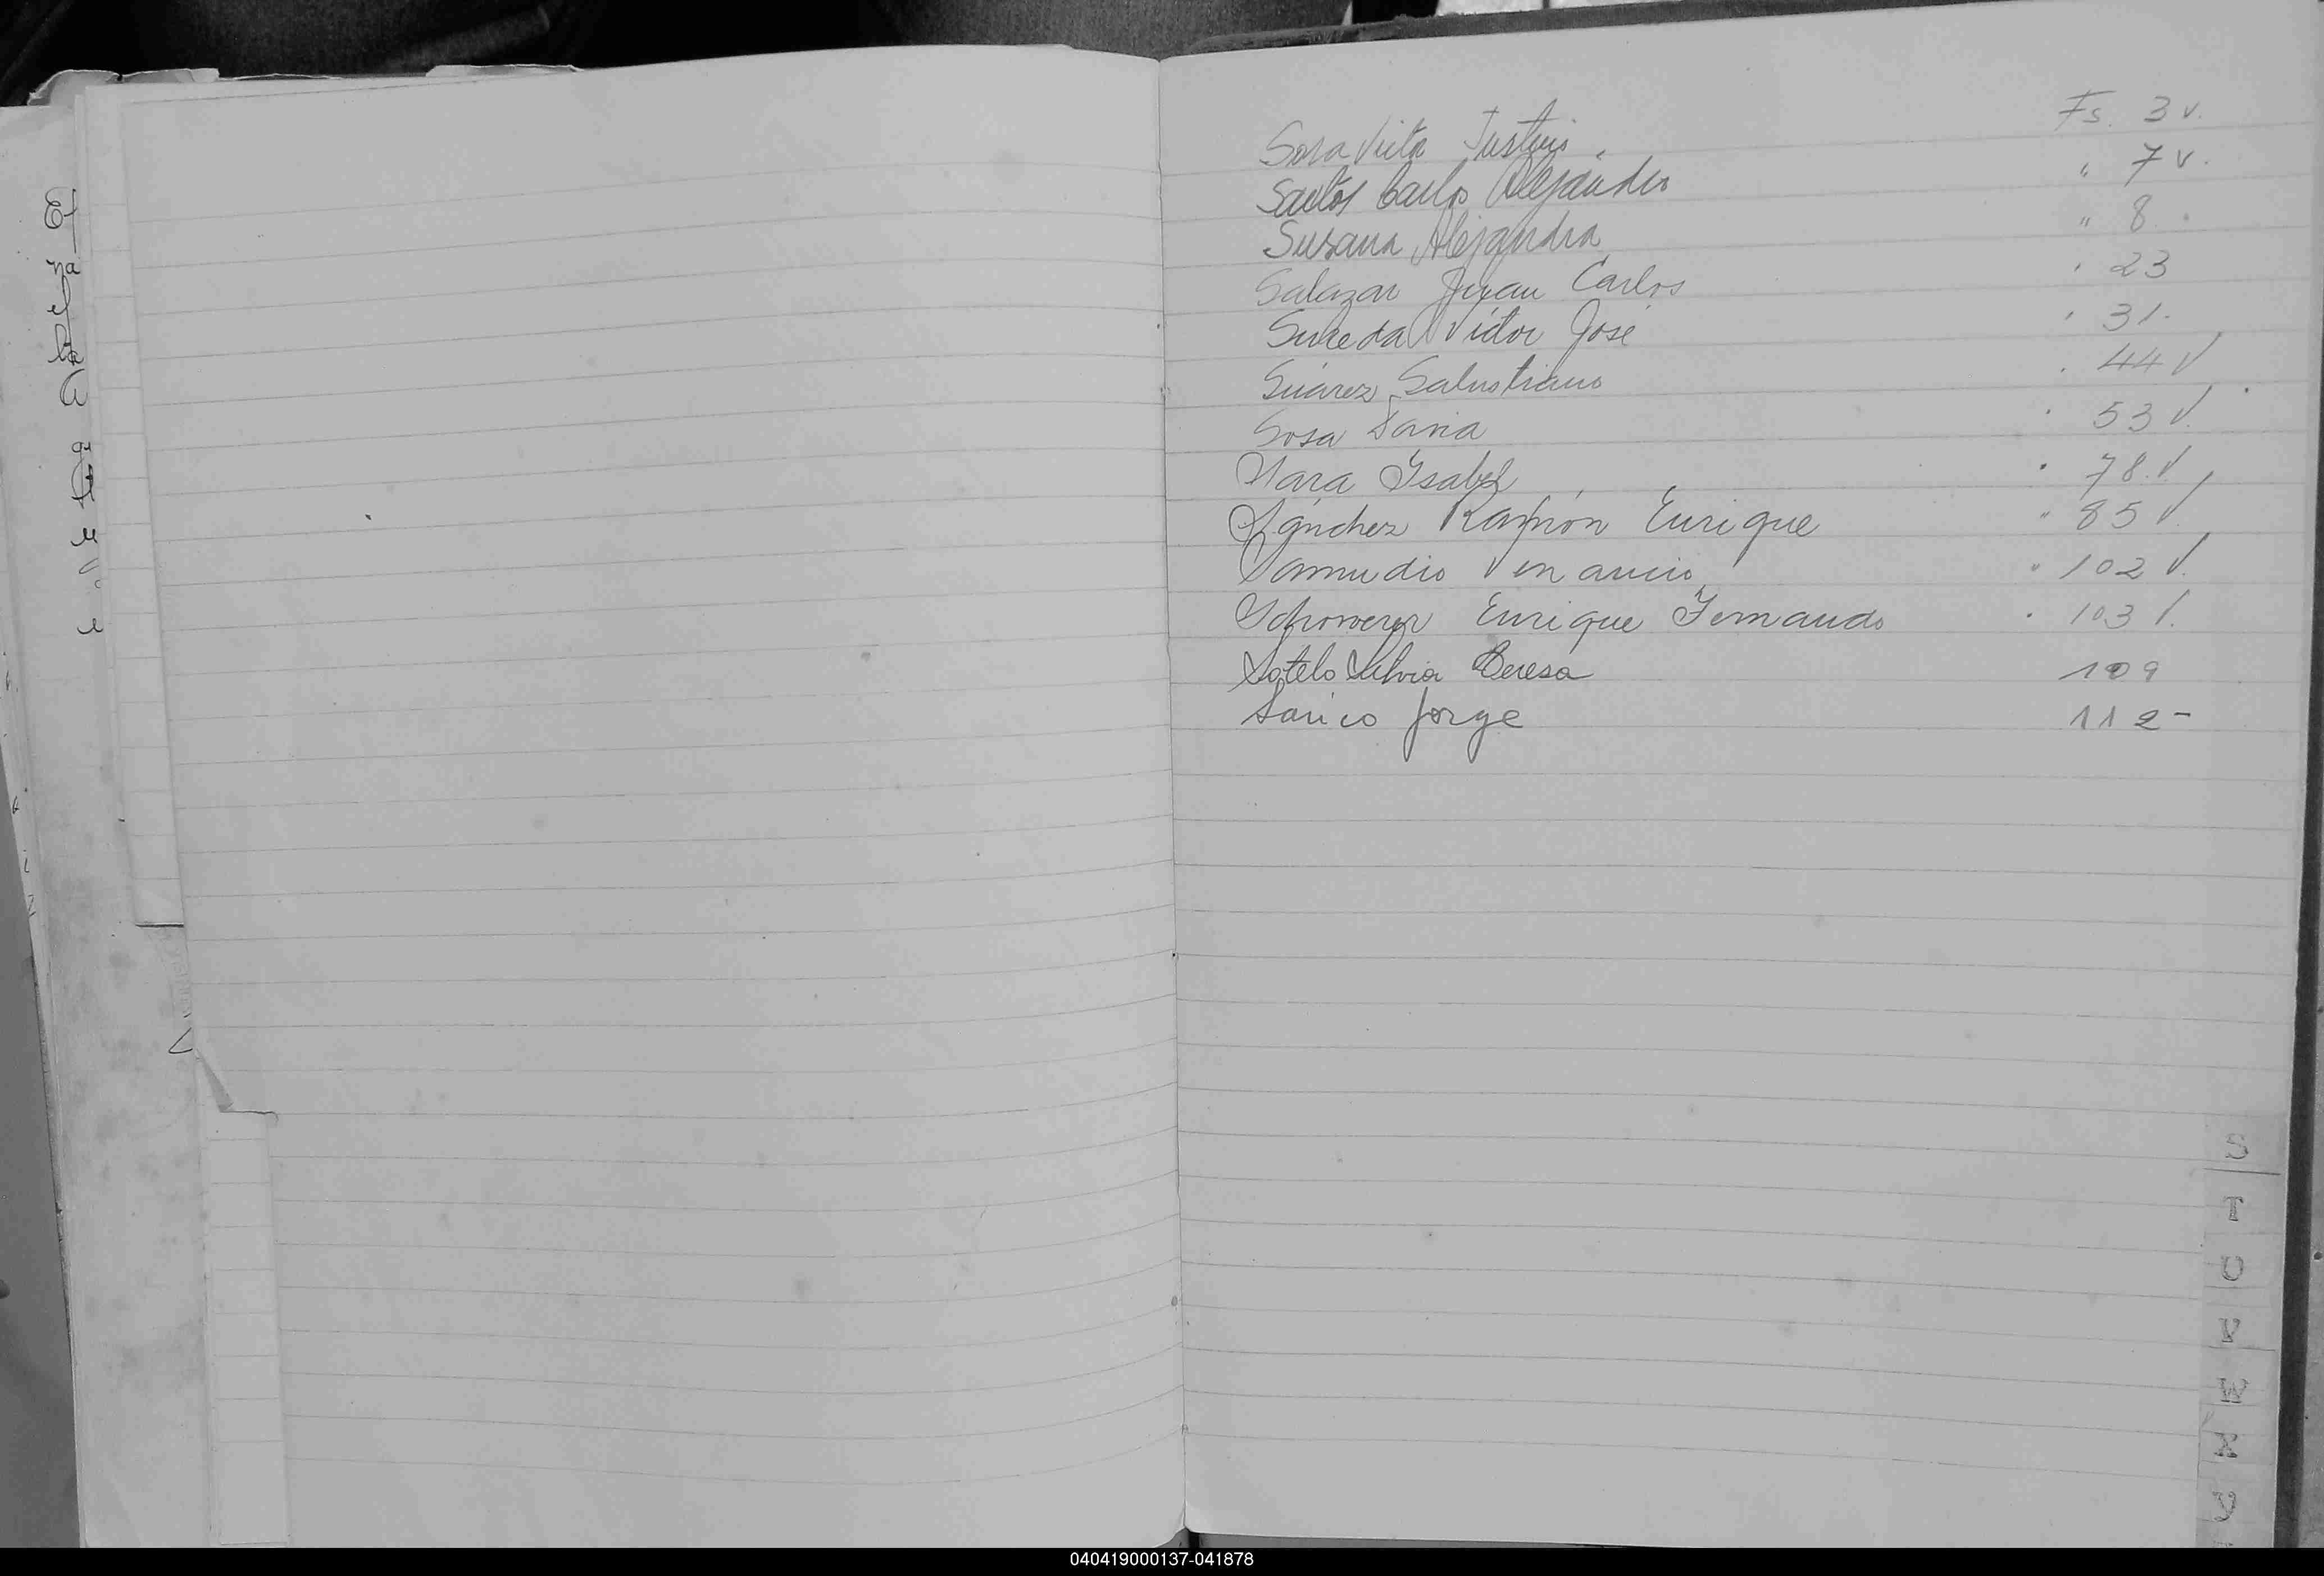 Sosa Victor Justino Fs. 3 v.
Santos Carlos Alejandro " 7 v.
Susana Alejandra " 8
Salazar Juan Carlos 23
Sureda Victor José 31.
Suárez Salustiano 44 v
Sosa Sonia 53 v.
Isabel 78 v
Sánchez Ramón Enrique " 85 v
Samudio Venancio " 102 v.
Enrique Fernando 103 v.
Sotelo Silvia Teresa 109
Jorge 112-
S
T
U
V
W
X
040419000137-041878